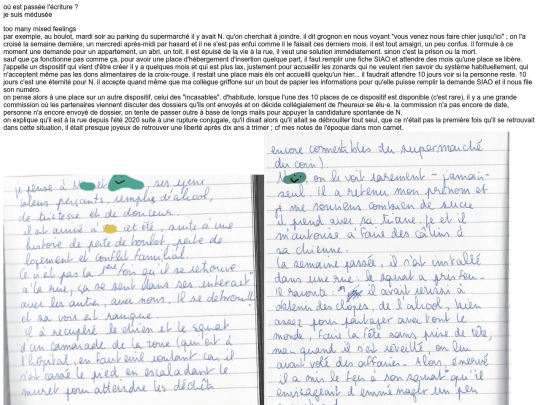 où est passée l'écriture ?
je suis médusée
too many mixed feelings
par exemple, au boulot, mardi soir au parking du supermarché il y avait N. qu'on cherchait à joindre. il dit grognon en nous voyant "vous venez nous faire chier jusqu'ici" ; on l'a
croisé la semaine dernière, un mercredi après-midi par hasard et il ne s'est pas enfui comme il le faisait ces derniers mois. il est tout amaigri, un peu confus. il formule à ce
moment une demande pour un appartement, un abri, un toit, il est épuisé de la vie à la rue, il veut une solution immédiatement. sinon c'est la prison ou la mort.
sauf que ça fonctionne pas comme ça, pour avoir une place d'hébergement d'insertion quelque part, il faut remplir une fiche SIAO et attendre des mois qu'une place se libère.
j'appelle un dispositif qui vient d'être créer il y a quelques mois et qui est plus lax, justement pour accueillir les zonards qui ne veulent rien savoir du système habituellement, qui
n'acceptent même pas les dons alimentaires de la croix-rouge. il restait une place mais els ont accueilli quelqu'un hier... il faudrait attendre 10 jours voir si la personne reste. 10
jours c'est une éternité pour N. il accepte quand même que ma collègue griffone sur un bout de papier les informations pour qu'elle puisse remplir la demande SIAO et il nous file
son numéro.
on pense alors à une place sur un autre dispositif, celui des "incasables". d'habitude, lorsque l'une des 10 places de ce dispositif est disponible (c'est rare), il y a une grande
commission où les partenaires viennent discuter des dossiers qu'ils ont envoyés et on décide collégialement de l'heureux·se élu·e. la commission n'a pas encore de date,
personne n'a encore envoyé de dossier, on tente de passer outre à base de longs mails pour appuyer la candidature spontanée de N.
on explique qu'il est à la rue depuis l'été 2020 suite à une rupture conjugale, qu'il disait alors qu'il allait se débrouiller tout seul, que ce n'était pas la première fois qu'il se retrouvait
dans cette situation, il était presque joyeux de retrouver une liberté après dix ans à trimer ; cf mes notes de l'époque dans mon carnet.
je pense à N et , ses yeux
bleus perçants, remplis d'alcool,
de tristesse et de douceur.
il est arrivé à cet été, suite à une
histoire de perte de boulot, perte de
logement et conflit familial.
Ce n'est pas la 1ère fois qu'il se retrouve
à la rue, ça se sent dans ses interact°
avec les autres, avec nous. Il se débrouille
et sa voix est rauque.
il a récupéré le chien et le squat
d'un camarade de la zone (qui est à
l'hôpital, en fauteuil roulant car il
s'est cassé le pied en escaladant le
muret pour atteindre les déchets
encore comestibles du supermarché
du coin)
N on le voit rarement - jamais -
seul. Il a retenu mon prénom et
je me souviens combien de sucre
il prend avec sa tisane. Je et il
m'autorise à faire des câlins à
sa chienne.
la semaine passée, il s'est installé
dans une rue : le squat a pris feu.
Il raconte : il avait réussi à
obtenir des clopes, de l'alcool, bien
assez pour partager avec tout le
monde, faire la fête sans prise de tête,
mais quand il s'est réveillé, on lui
avait volé des affaires. Alors, énervé
il a mis le feu à son squat qu'il
envisageait d'emménager un peu